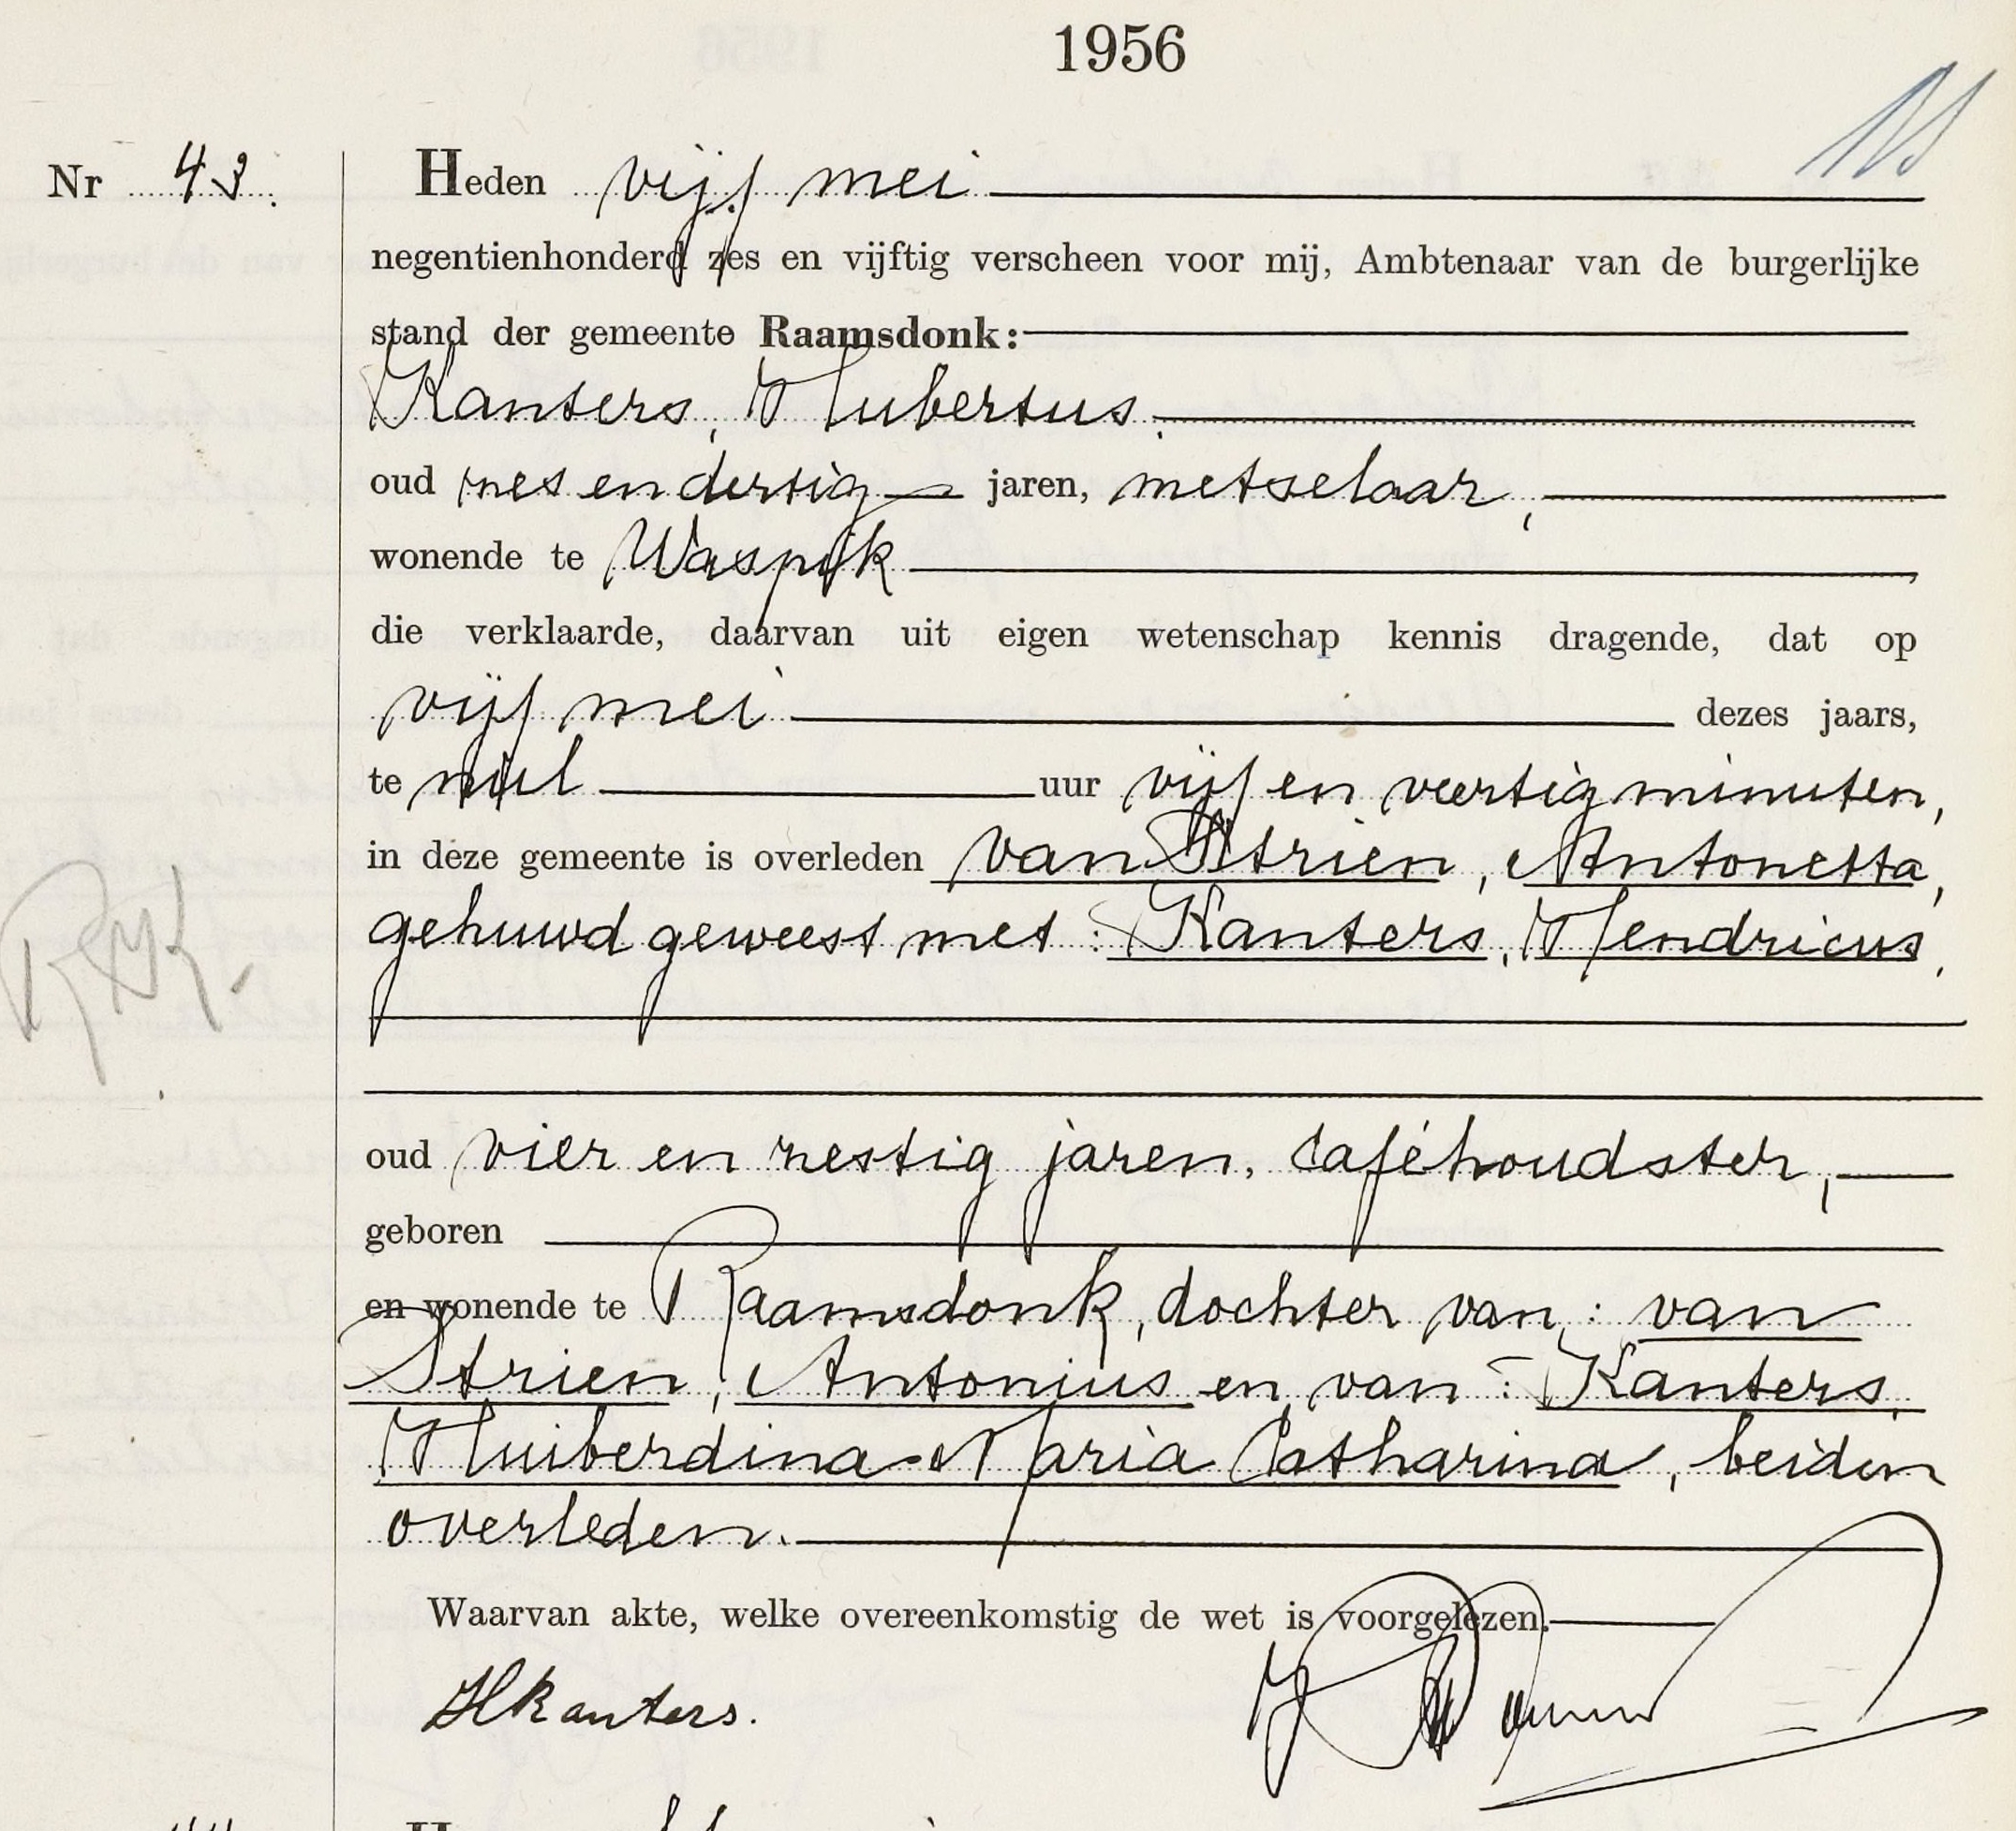 1956
Nr 43.
Heden vijf mei
negentienhonderd zes en vijftig verscheen voor mij, Ambtenaar van de burgerlijke
stand der gemeente Raamsdonk:
Kanters, Hubertus,
oud zes en dertig jaren, metselaar,
wonende te Waspik,
die verklaarde, daarvan uit eigen wetenschap kennis dragende, dat op
vijf mei dezes jaars,
te nul uur vijf en veertig minuten,
in deze gemeente is overleden van Strien, Antonetta,
gehuwd geweest met: Kanters, Hendricus,
oud vier en zestig jaren, caféhoudster,
geboren
en wonende te Raamsdonk, dochter van: van
Strien, Antonius en van: Kanters,
Huiberdina Maria Catharina, beiden
overleden.
Waarvan akte, welke overeenkomstig de wet is voorgelezen.
HKanters.